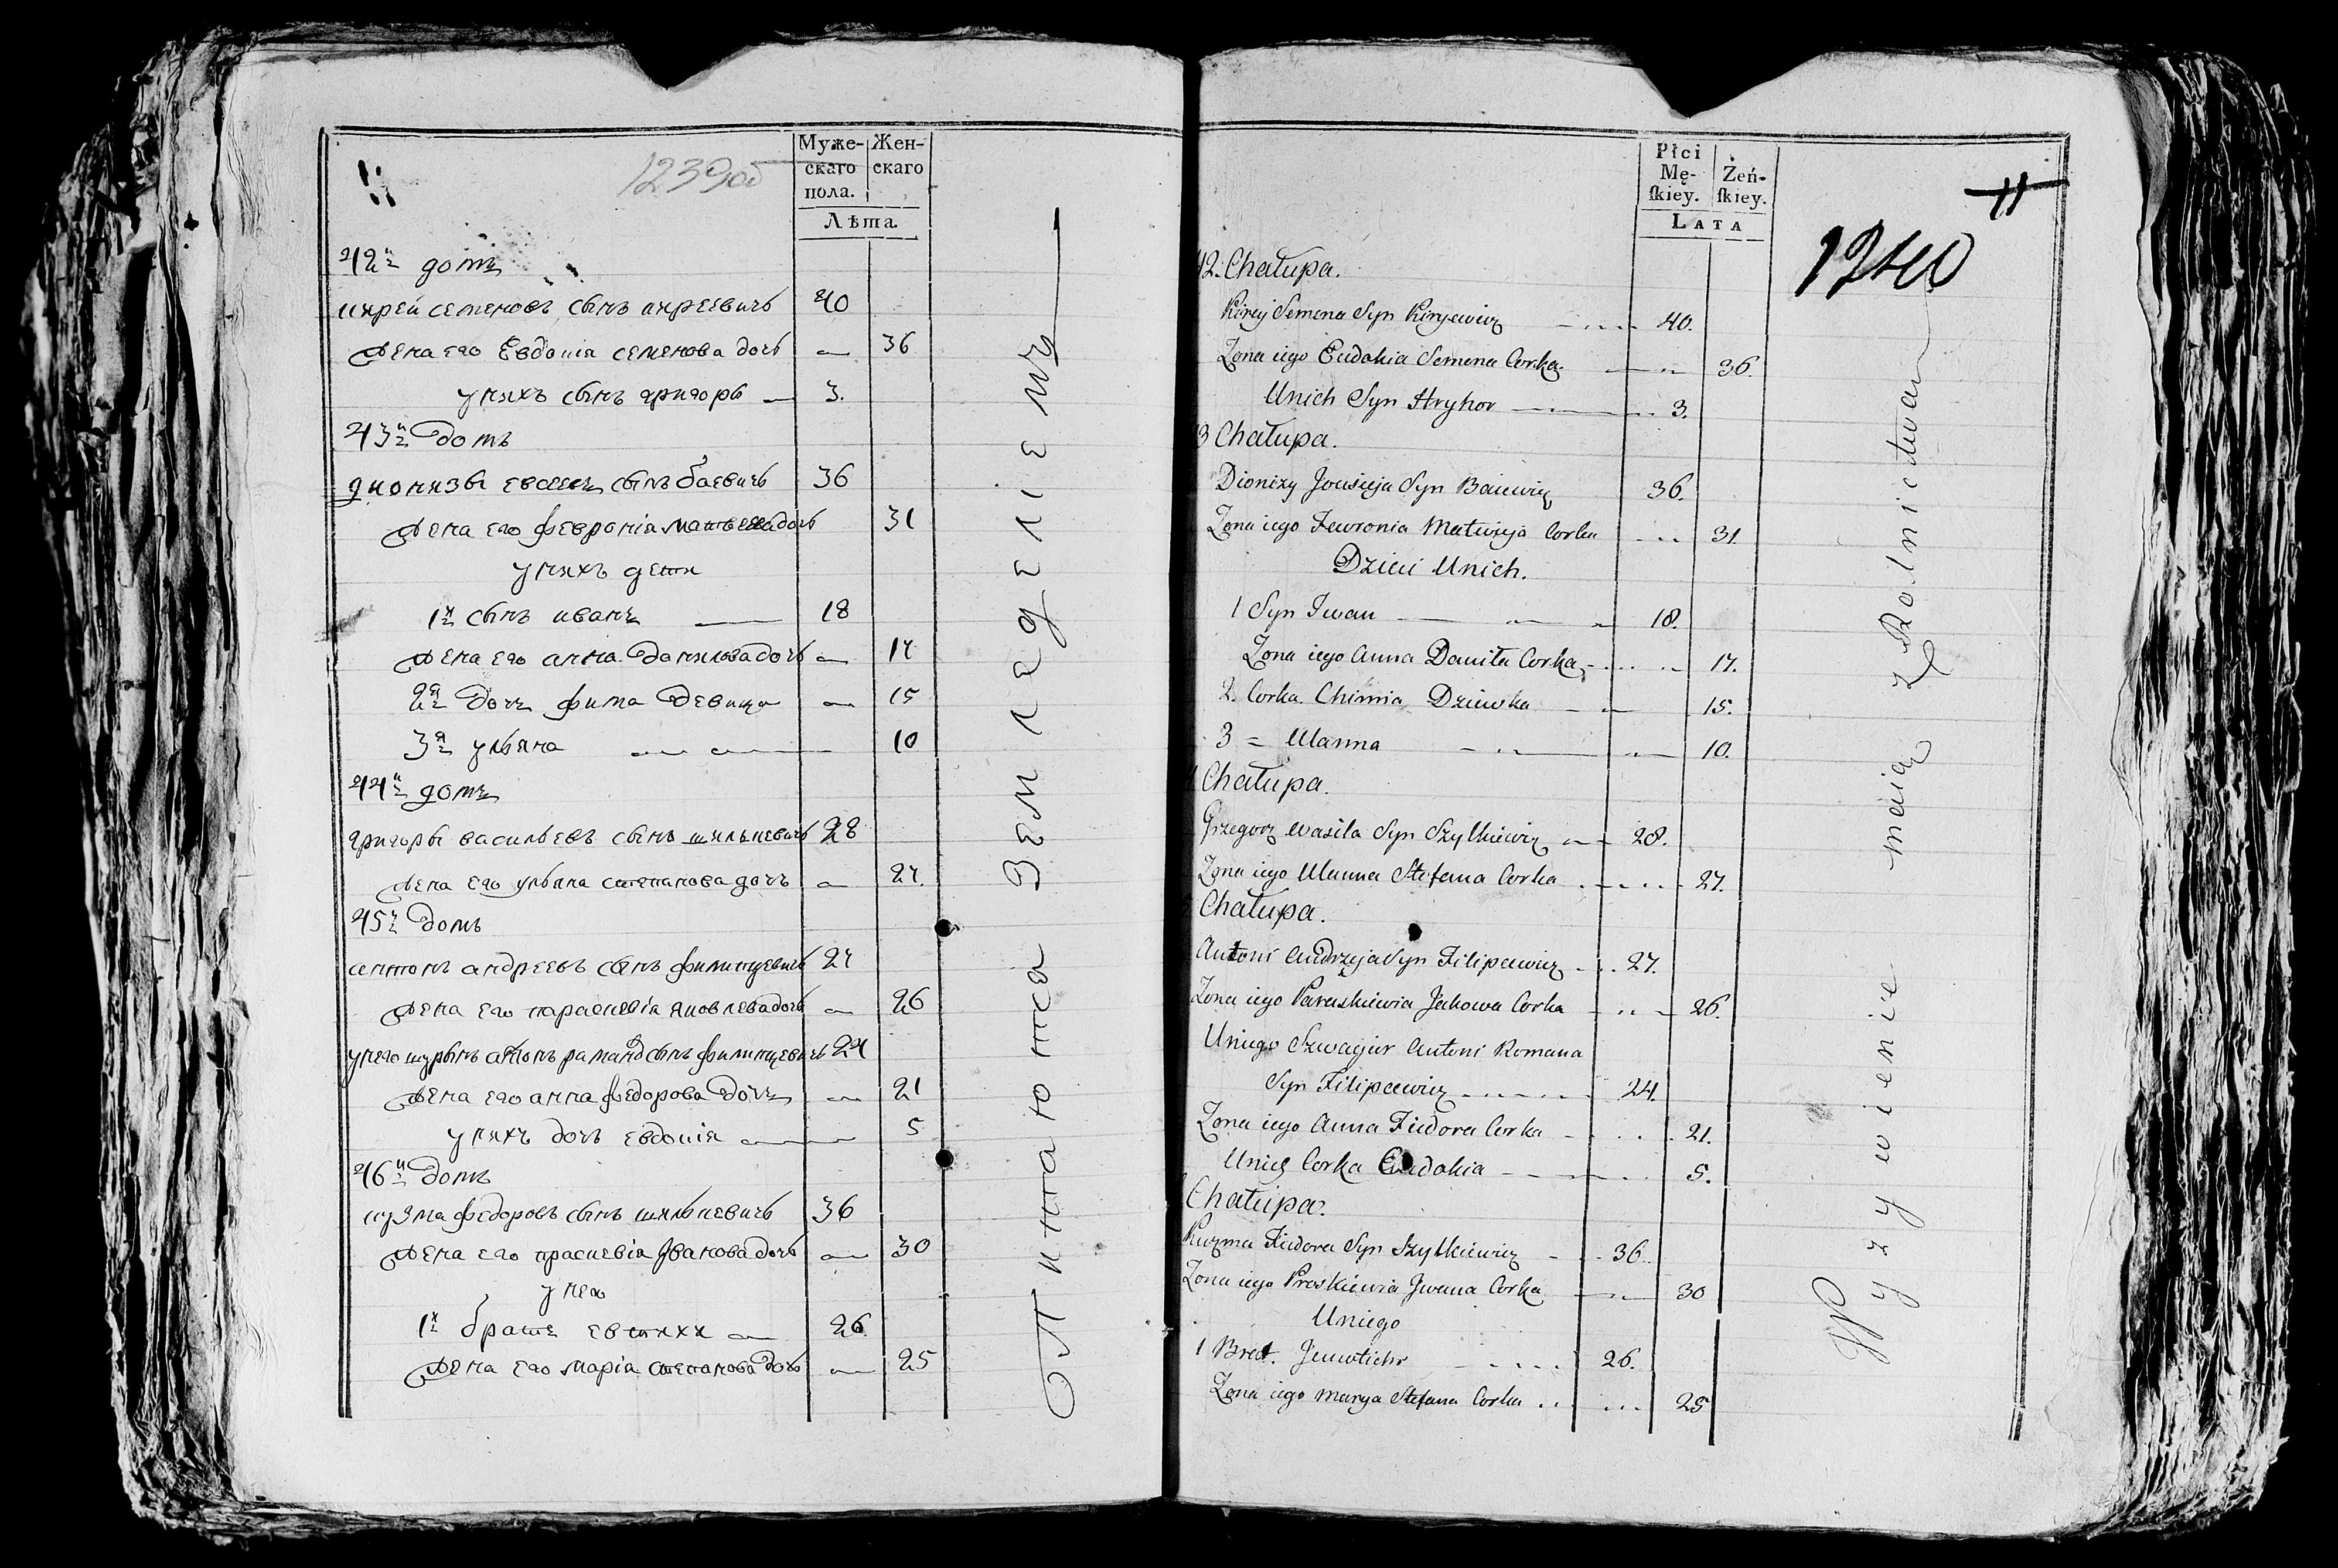 1239об
Муже-
скаго
пола.
Жен-
скаго
Лѣта
42й домъ
кирей семеновъ сынъ киреевичъ 40
Жена его Евдокіа семенова дочь — 36
у нихъ сынъ григоры — 3.
43й Домъ
дионизы сынъ баевичъ 36
Жена его февроніа дочь 31
у нихъ дети
1й сынъ иванъ — 18
Жена его анна данилова дочь — 17
2я Дочь фима Девица — 15
3я ульяна — 10
44й домъ
григоры васильевъ сынъ шилькевичъ 28
Жена его ульяна степанова дочь — 27.
45й Домъ
антонъ андреевъ сынъ филипцевичъ 27
Жена его параскевіа яковлева дочь — 26
у него шурынъ антонъ романа сынъ филипцевичъ 24
Жена его анна федорова Дочь — 21
у нихъ дочь евдокіа — 5
46й Домъ
кузма федоровъ сынъ шилькевичъ 36
Жена его праскевіа Іванова дочь — 30
у него
1й братъ евтихи — 26
Жена его маріа степанова Дочь — 25
Опитаются Землєделіємъ
Płci
Mę-
ſkiey.
Żeń-
ſkiey.
LATA
11
1240
42. Chałupa.
Kirey Semena Syn Kiryewicz 40.
Zona iego Eudokia Semena Corka 36.
Unich Syn Hryhor 3.
3 Chałupa.
Dionizy Jousieja Syn Baiewicz 36.
Zona iego Fewronia Matwieja Corka 31.
Dzieci Unich.
1 Syn Iwan 18.
Zona iego Anna Daniła Corka 17.
2. Corka Chimia Dziewka 15.
3 = Ulanna 10.
Chałupa.
Grzegorz Wasila Syn Szylkiewicz 28.
Zona iego Ulanna Stefana Corka 27.
Chałupa.
Antoni Andrzeja Syn Filipcewicz 27.
Zona iego Paraskiewia Jakowa Corka 26.
Uniego Szwagier Antoni Romana
Syn Filipcewicz 24.
Zona iego Anna Fiedora Corka 21.
Unich Corka Eudokia 5.
Chałupa.
Kuzma Fiedora Syn Szylkiewicz 36.
Zona iego Praskiewia Jwana Corka 30
Uniego
1 Brat. Jewtichi 26.
Zona iego Marya Stefana Corka 25
Wyzywienie maią z Rolnictwa